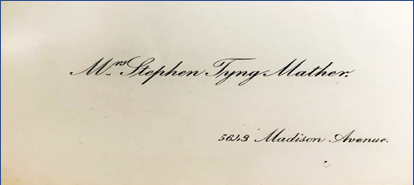 Mrs Stephen Tyng Mather.
5643 Madison Avenue.